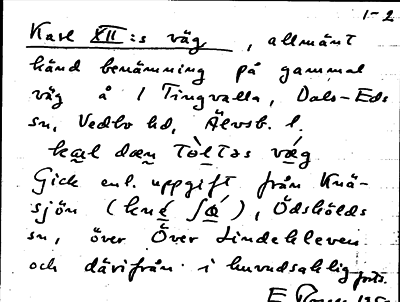 1-2
Karl XII:s väg, allmänt
känd benämning på gammal
väg å 1 Tingvalla, Dals-Eds
sn, Vedbo hd, Älvsb. l.
kał dæn tòltəs vǽ̨g
Gick enl. uppgift från Knä-
sjön (knę́ ʃǿ), Ödskölds
sn, över Över Lindekleven
och därifrån i huvudsaklig
forts.